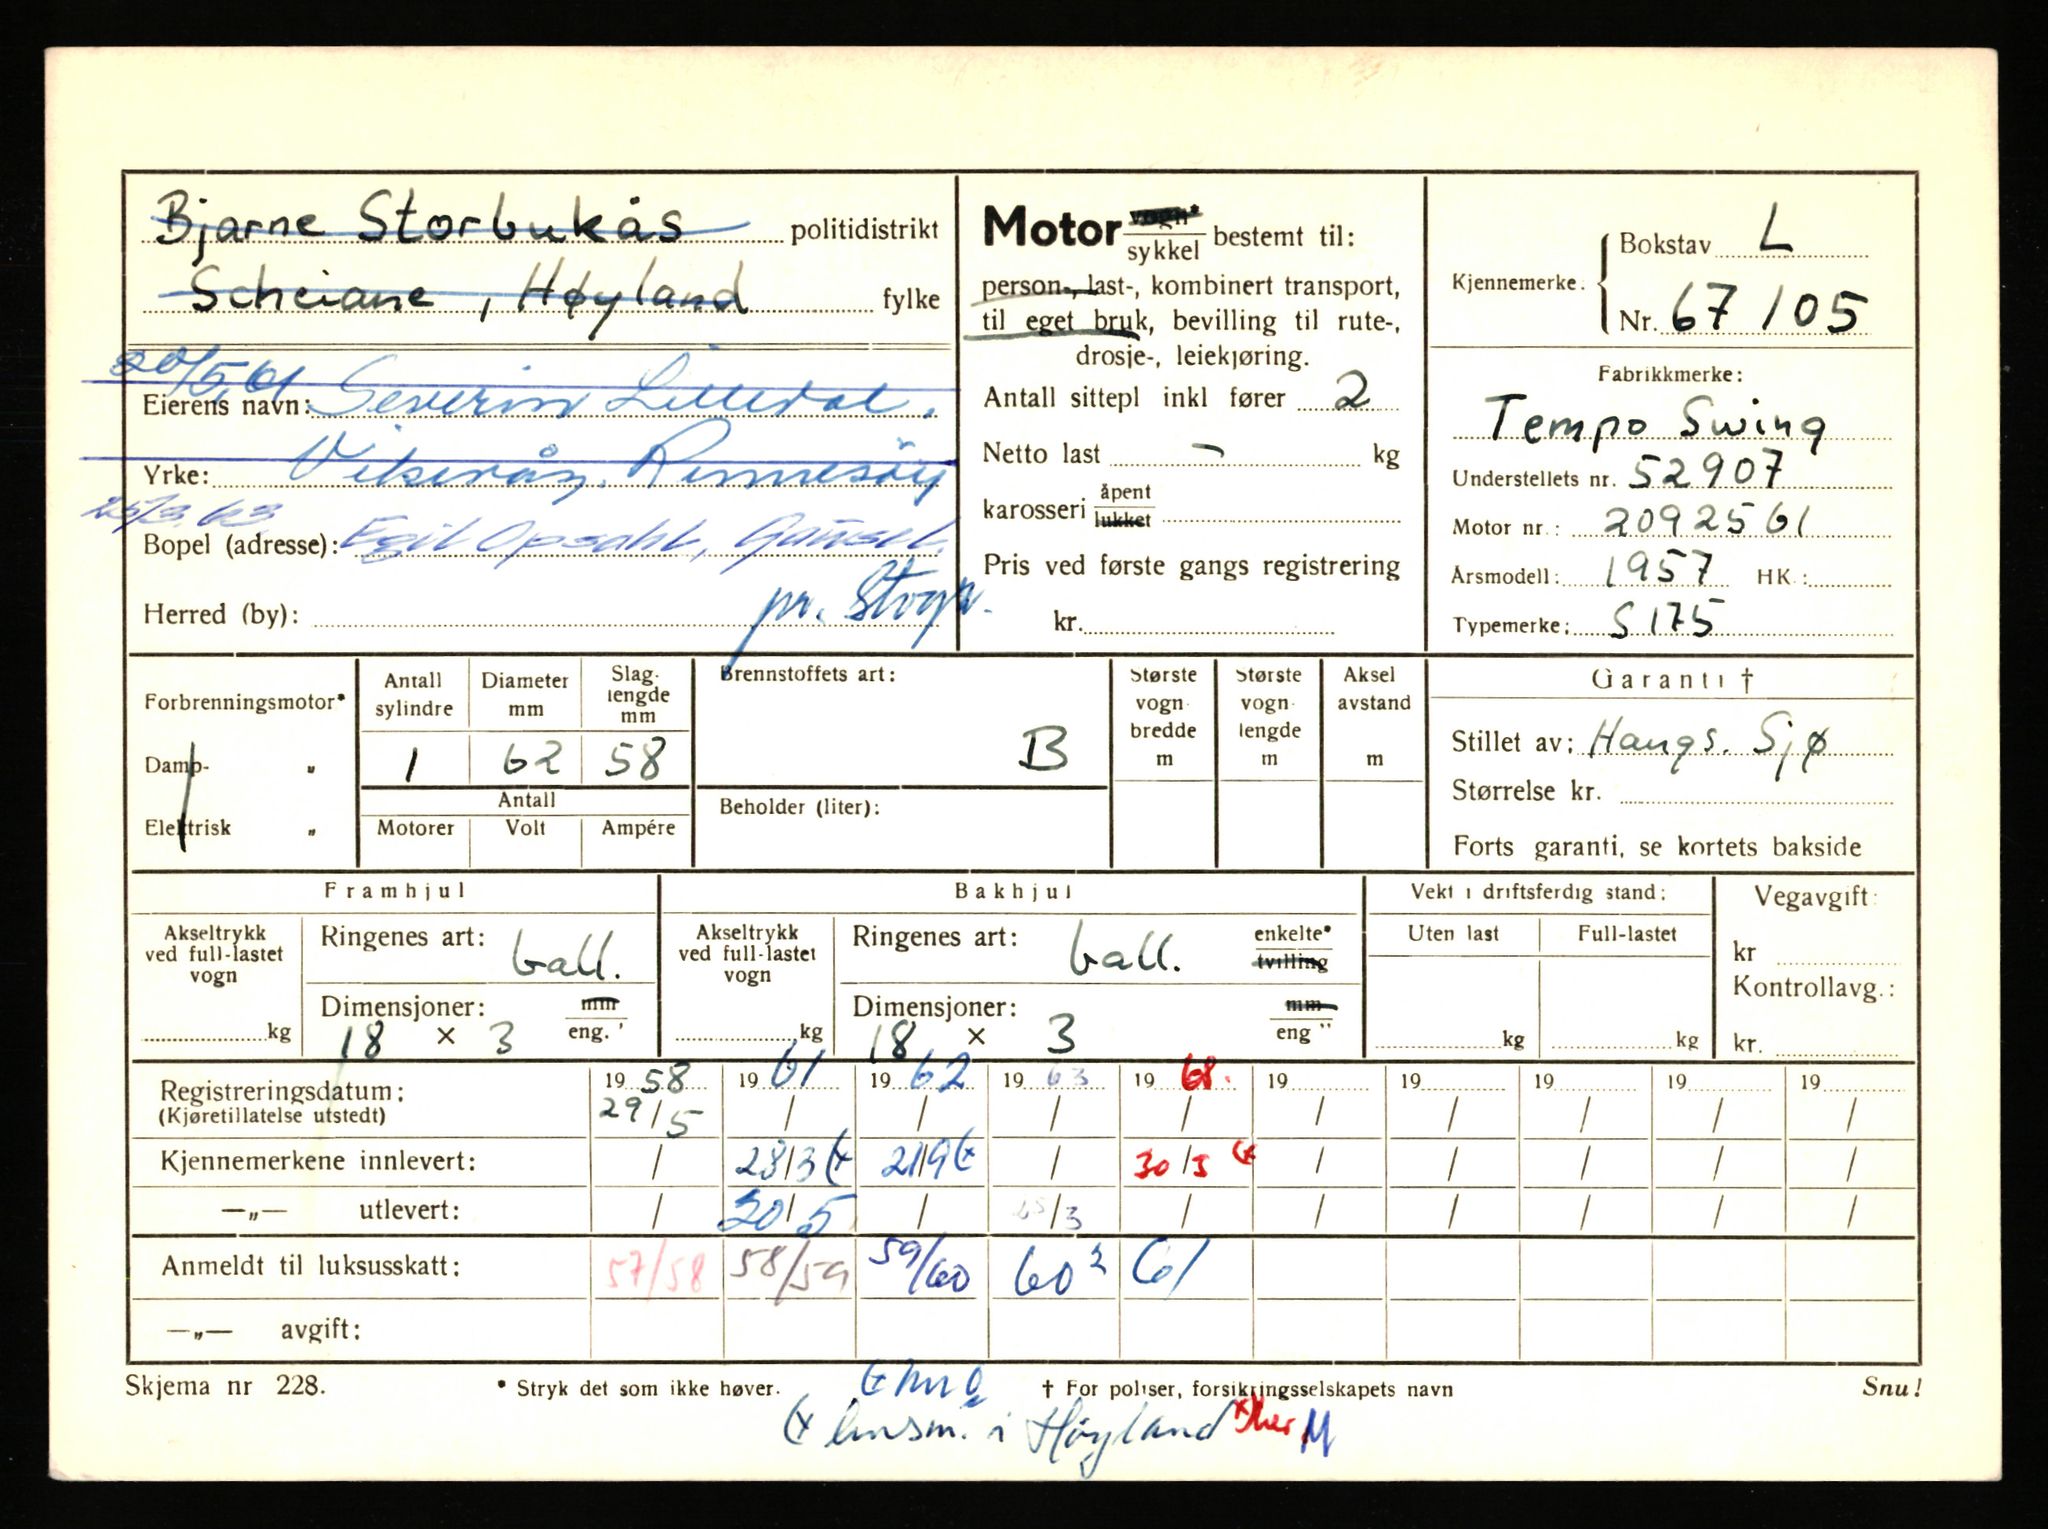 Bjarne Storbukås politidistrikt
Scheiane, Høyland fylke
20/5.61 Severin Lilledal.
Eierens navn:
Vikevåg, Rennesöy
Yrke:
25/3.63 Egil Opsahl, Gausel.
Bopel (adresse):
pr. Stvgr.
Herred (by):
Motor vogn* sykkel bestemt til:
person-, last-, kombinert transport,
til eget bruk, bevilling til rute-,
drosje-, leiekjøring.
Antall sittepl inkl fører 2
Netto last - kg
karosseri åpent lukket
Pris ved første gangs registrering
kr.
Kjennemerke: Bokstav L
Nr. 67105
Fabrikkmerke:
Tempo Swing
Understellets nr. 52907
Motor nr.: 2092561
Årsmodell: 1957 HK.:
Typemerke: S 175
Forbrenningsmotor*
Damp- „
Elektrisk „
Antall sylindre
Diameter mm
Slag- lengde mm
1 62 58
Antall
Motorer Volt Ampére
Brennstoffets art:
B
Beholder (liter):
Største vogn bredde m
Største vogn lengde m
Aksel avstand m
Garanti †
Stillet av: Haugs. Sjø
Størrelse kr.
Forts garanti, se kortets bakside
Framhjul
Akseltrykk ved full-lastet vogn
kg
Ringenes art: ball.
Dimensjoner: mm eng."
18 x 3
Bakhjul
Akseltrykk ved full-lastet vogn
kg
Ringenes art: ball. enkelte* tvilling
Dimensjoner: mm eng"
18 x 3
Vekt i driftsferdig stand:
Uten last Full-lastet
kg kg
Vegavgift:
kr
Kontrollavg.:
kr.
Registreringsdatum: 19 58 19 61 19 62 19 63 19 68. 19 19 19 19 19
(Kjøretillatelse utstedt) 29/5 / / / / / / / / /
Kjennemerkene innlevert: / 28/3 (x 21/9 (x / 30/5 (x / / / / /
—„— utlevert: / 20/5 / 25/3 / / / / / /
Anmeldt til luksusskatt: 57/58 58/59 59/60 60² 61
—„— avgift:
Skjema nr 228. * Stryk det som ikke høver. † For poliser, forsikringsselskapets navn Snu!
(x lensm. i Høyland x) her M